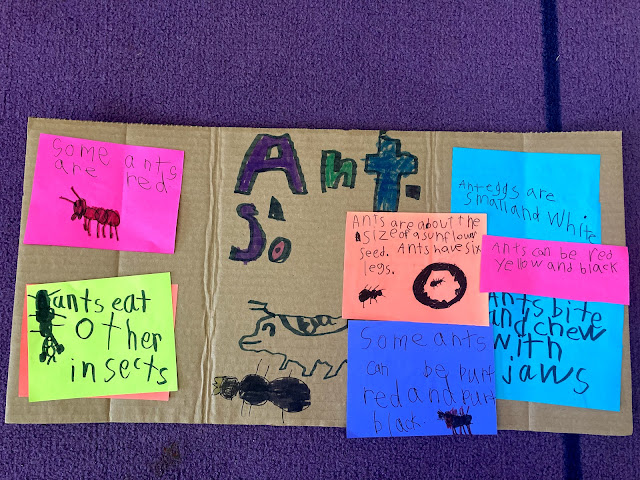 Some ants
are red
Ant.
So
ants eat
other
insects
Ants are about the
size of a sunflower
seed. Ants have six
legs.
Some ants
can be purt
red and purt
black.
Ant eggs are
small and white
Ants can be red
yellow and black
Ants bite
and chew
with
jaws